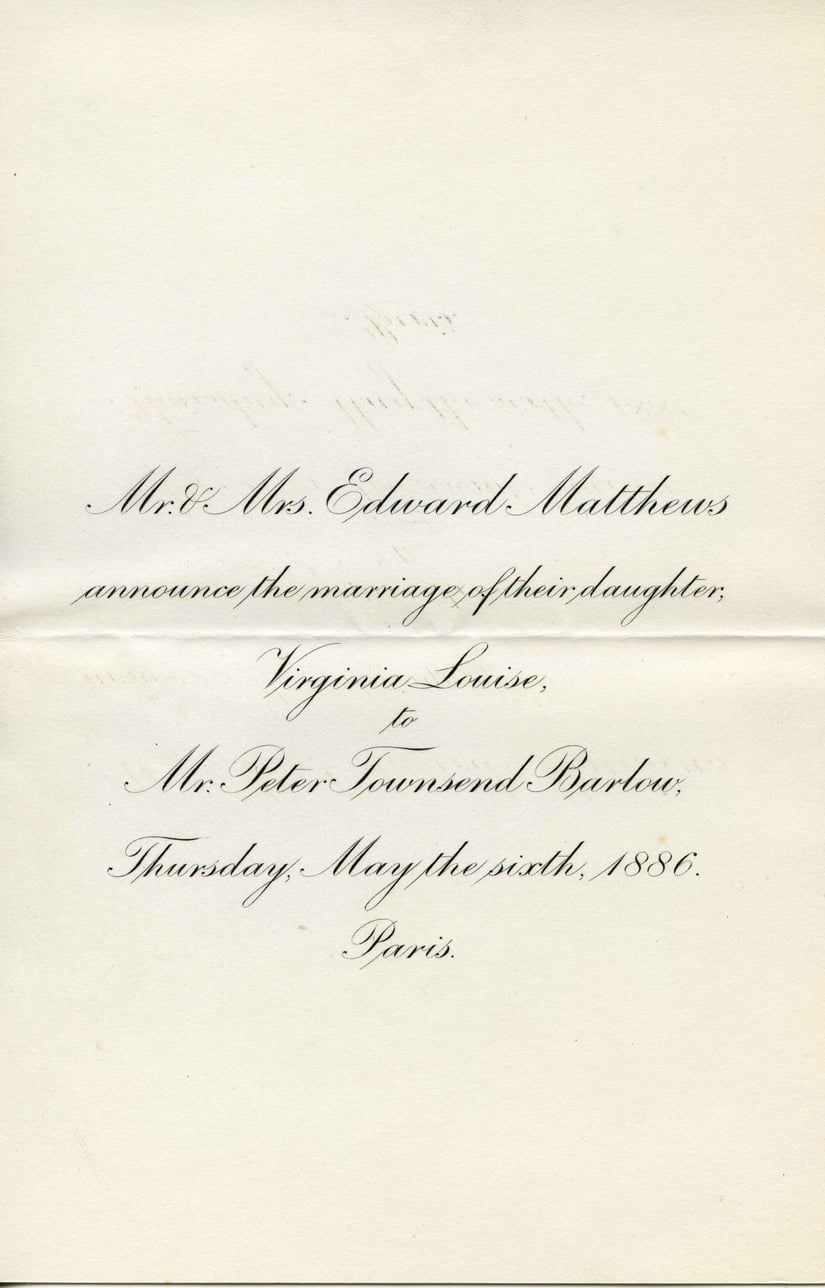 Mr. & Mrs. Edward Matthews
announce the marriage of their daughter,
Virginia Louise,
to
Mr. Peter Townsend Barlow,
Thursday, May the sixth, 1886.
Paris.